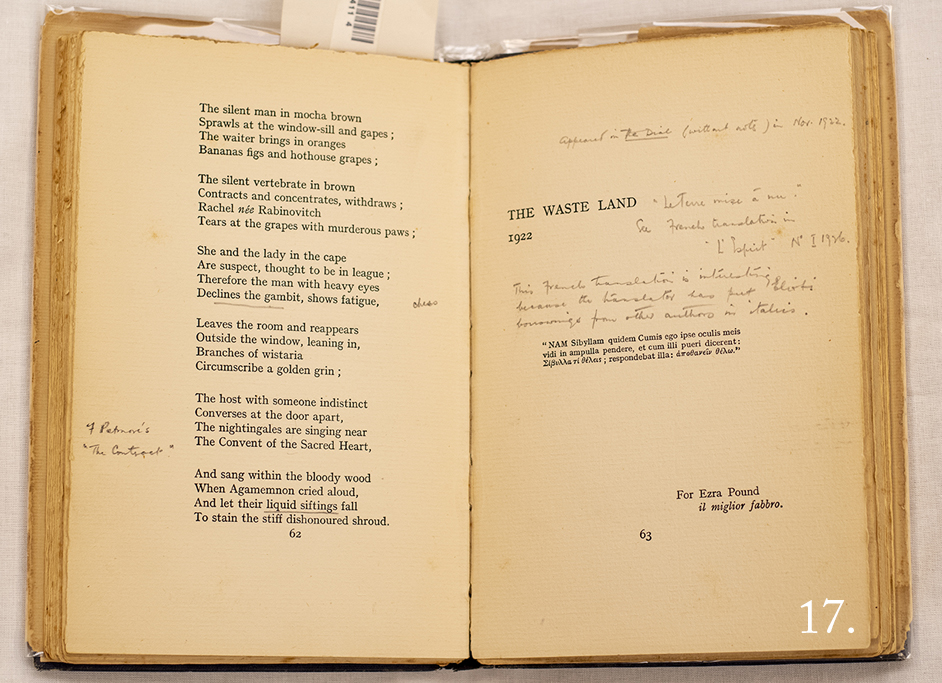 411 4
The silent man in mocha brown
Sprawls at the window-sill and gapes ;
The waiter brings in oranges
Bananas figs and hothouse grapes ;
The silent vertebrate in brown
Contracts and concentrates, withdraws ;
Rachel née Rabinovitch
Tears at the grapes with murderous paws ;
She and the lady in the cape
Are suspect, thought to be in league ;
Therefore the man with heavy eyes
Declines the gambit, shows fatigue,
chess
Leaves the room and reappears
Outside the window, leaning in,
Branches of wistaria
Circumscribe a golden grin ;
The host with someone indistinct
Converses at the door apart,
The nightingales are singing near
The Convent of the Sacred Heart,
cf Patmore's
"The Contract."
And sang within the bloody wood
When Agamemnon cried aloud,
And let their liquid siftings fall
To stain the stiff dishonoured shroud.
62
Appeared in the Dial (without notes) in Nov. 1922.
THE WASTE LAND
1922
"La terre mise à nu."
See French translation in
"L'Esprit" No I 1926.
This French translation is interesting
because the translator has put Eliot's
borrowings from other authors in italics.
"NAM Sibyllam quidem Cumis ego ipse oculis meis
vidi in ampulla pendere, et cum illi pueri dicerent:
Σίβυλλα τί θέλεις ; respondebat illa: ἀποθανεῖν θέλω."
For Ezra Pound
il miglior fabbro.
63
17.